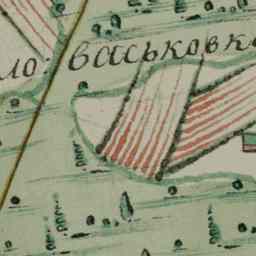 ло васьковк